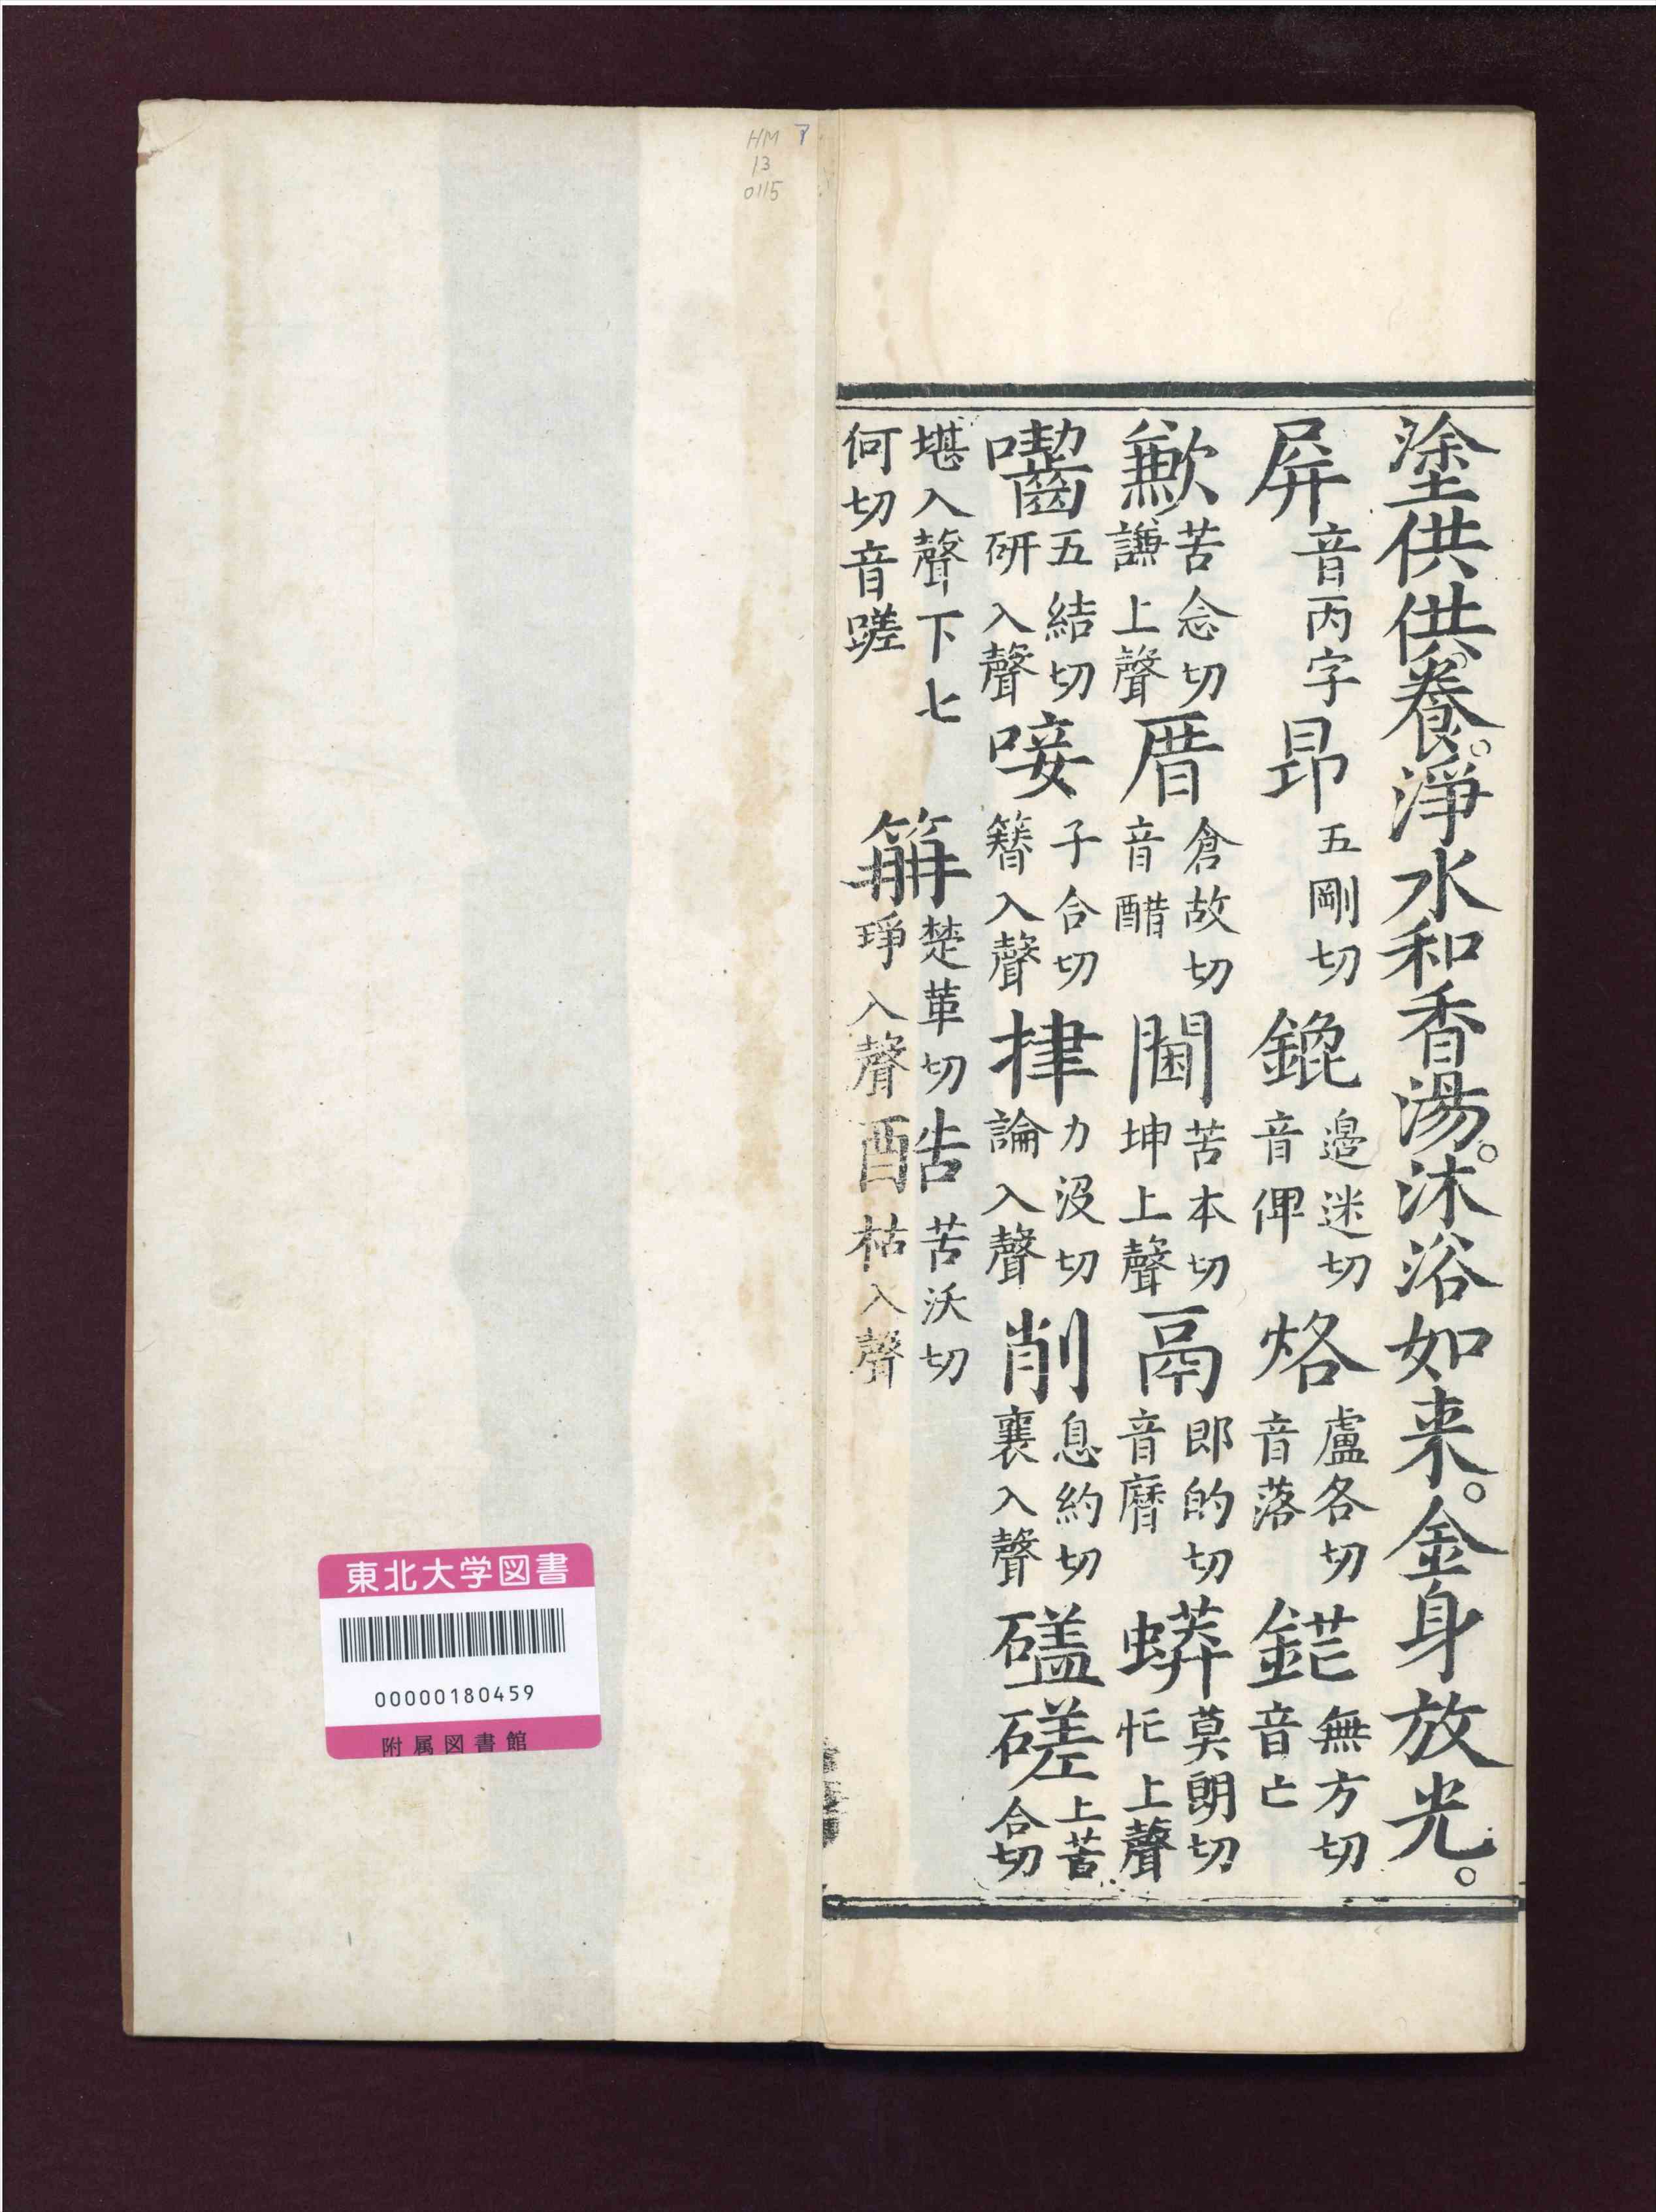 塗供供養。淨水和香湯。沐浴如来。金身放光。
屏音丙字 昂五剛切 鎞邉迷切音俾 烙盧各切音落 鋩無方切音亡
歉苦念切謙上聲 厝倉故切音醋 閫苦本切坤上聲 鬲郎的切音曆 蟒莫朗切忙上聲
囓五結切研入聲 唼子合切簪入聲 𢯰力没切論入聲 削息約切襄入聲 磕磋上苦合切
堪入聲下七何切音蹉 𥬰楚革切琤入聲 酷苦沃切枯入聲
HM 7
13
0115
東北大学図書
00000180459
附属図書館